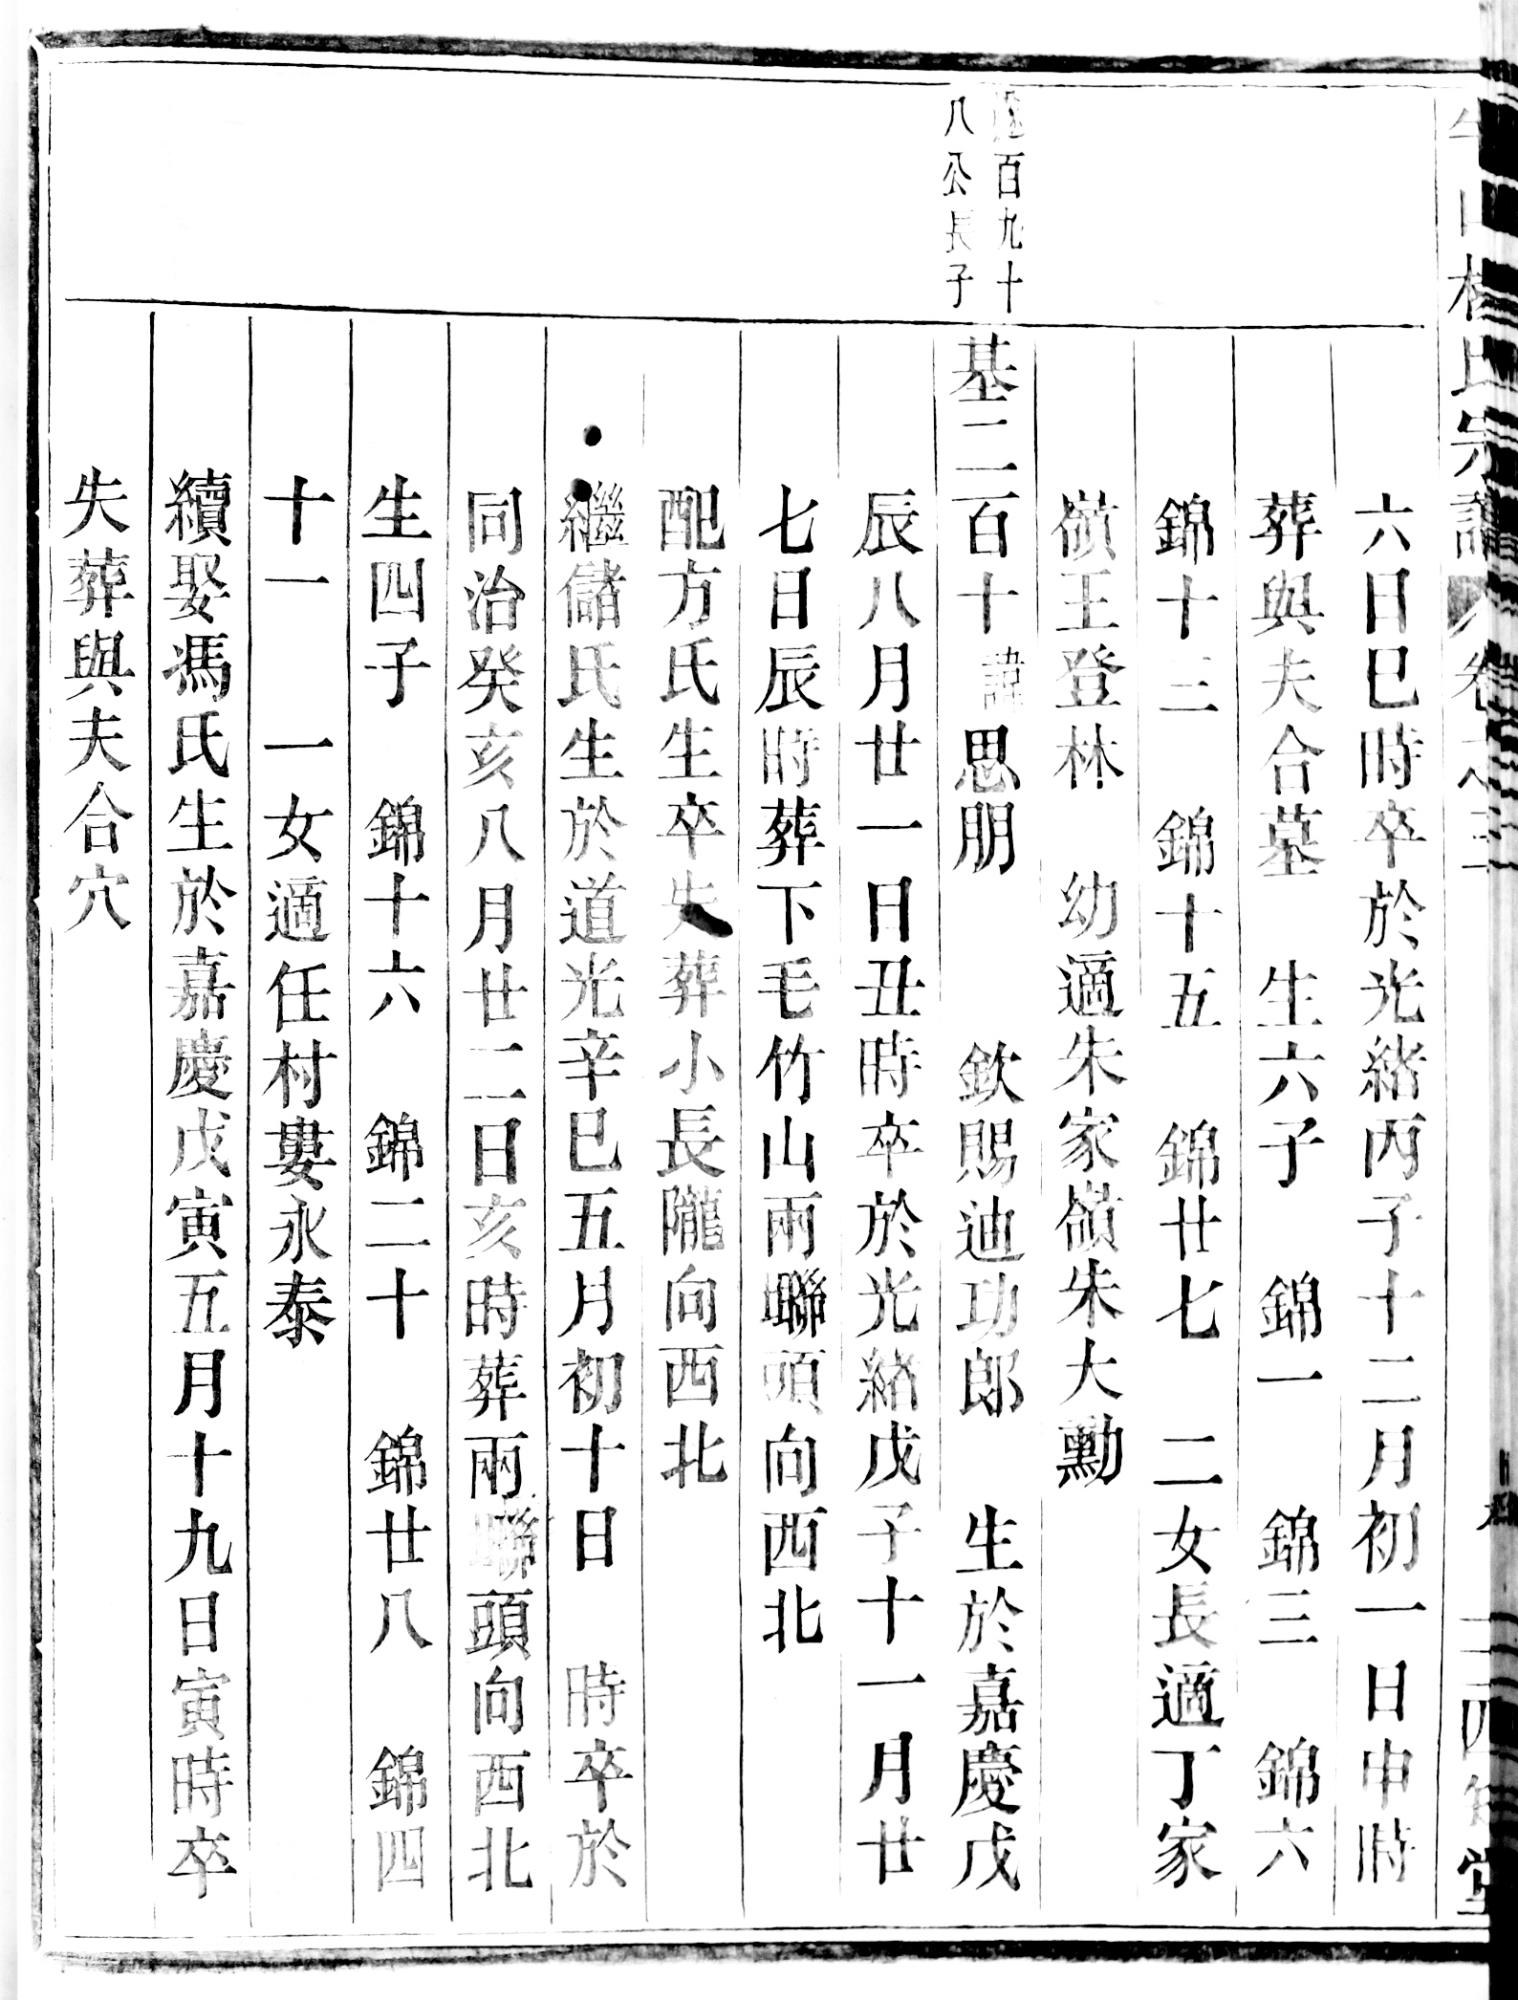 山楊氏宗譜 卷之三 四知堂
六日巳時卒於光緒丙子十二月初一日申時
葬與夫合墓 生六子 錦一 錦三 錦六
錦十三 錦十五 錦廿七 二女長適丁家
嶺王登林 幼適朱家嶺朱大勳
百九十
八公長子
基二百十諱思朋 欽賜迪功郎 生於嘉慶戊
辰八月廿一日丑時卒於光緒戊子十一月廿
七日辰時葬下毛竹山兩塒頭向西北
配方氏生卒失葬小長隴向西北
繼儲氏生於道光辛巳五月初十日 時卒於
同治癸亥八月廿二日亥時葬兩頭向西北
生四子 錦十六 錦二十 錦廿八 錦四
十一 一女適任村婁永泰
續娶馮氏生於嘉慶戊寅五月十九日寅時卒
失葬與夫合穴